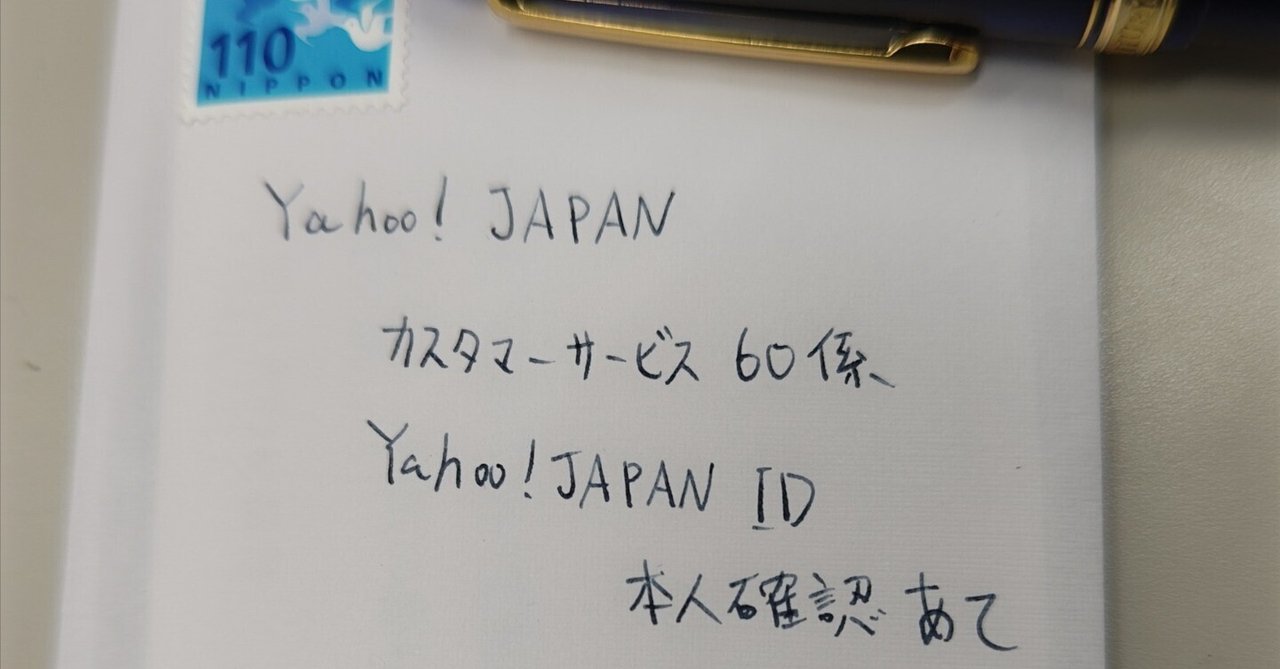 110
NIPPON
Yahoo! JAPAN
カスタマーサービス 60係、
Yahoo! JAPAN ID
本人確認 あて